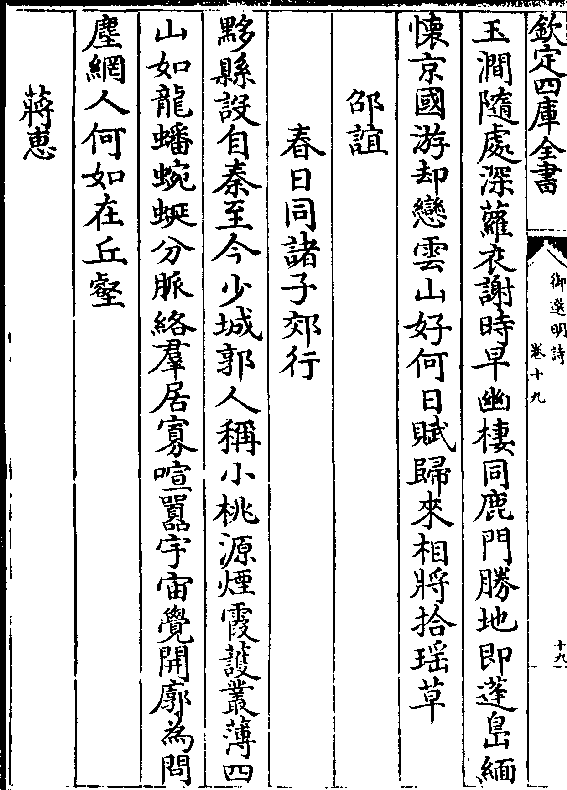 欽定四庫全書
御選明詩
卷十九
十九
玉澗隨處深蘿衣謝時早幽棲同鹿門勝地即蓬島緬
懷京國游却戀雲山好何日賦歸來相將拾瑶草
邵誼
春日同諸子郊行
黟縣設自秦至今少城郭人稱小桃源煙霞護叢薄四
山如龍蟠蜿蜒分脈絡羣居寡喧囂宇宙覺開廓為問
塵網人何如在丘壑
蔣恵